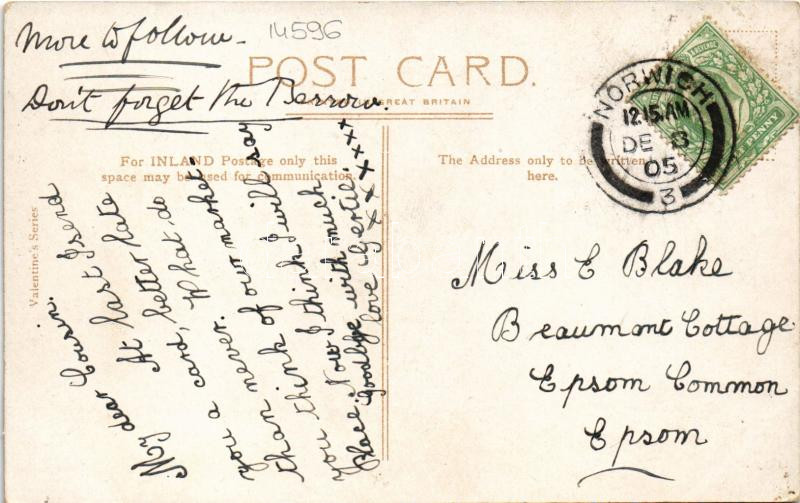 More to follow-
14596
Don't forget the
POST CARD.
GREAT BRITAIN
For INLAND Postage only this
space may be used for communication.
The Address only to be written
here.
Valentine's Series
NORWICH
12.15.AM
DE 8
05
3
& REVENUE
PENNY
My dear Cousin.
At last I send
a better late
card, What do
you think of our market
than never.
you think I will say
Place. Now I think
Goodbye with much
love Gertie.
xxxxxxx
Miss E Blake
Beaumont Cottage
Epsom Common
Epsom